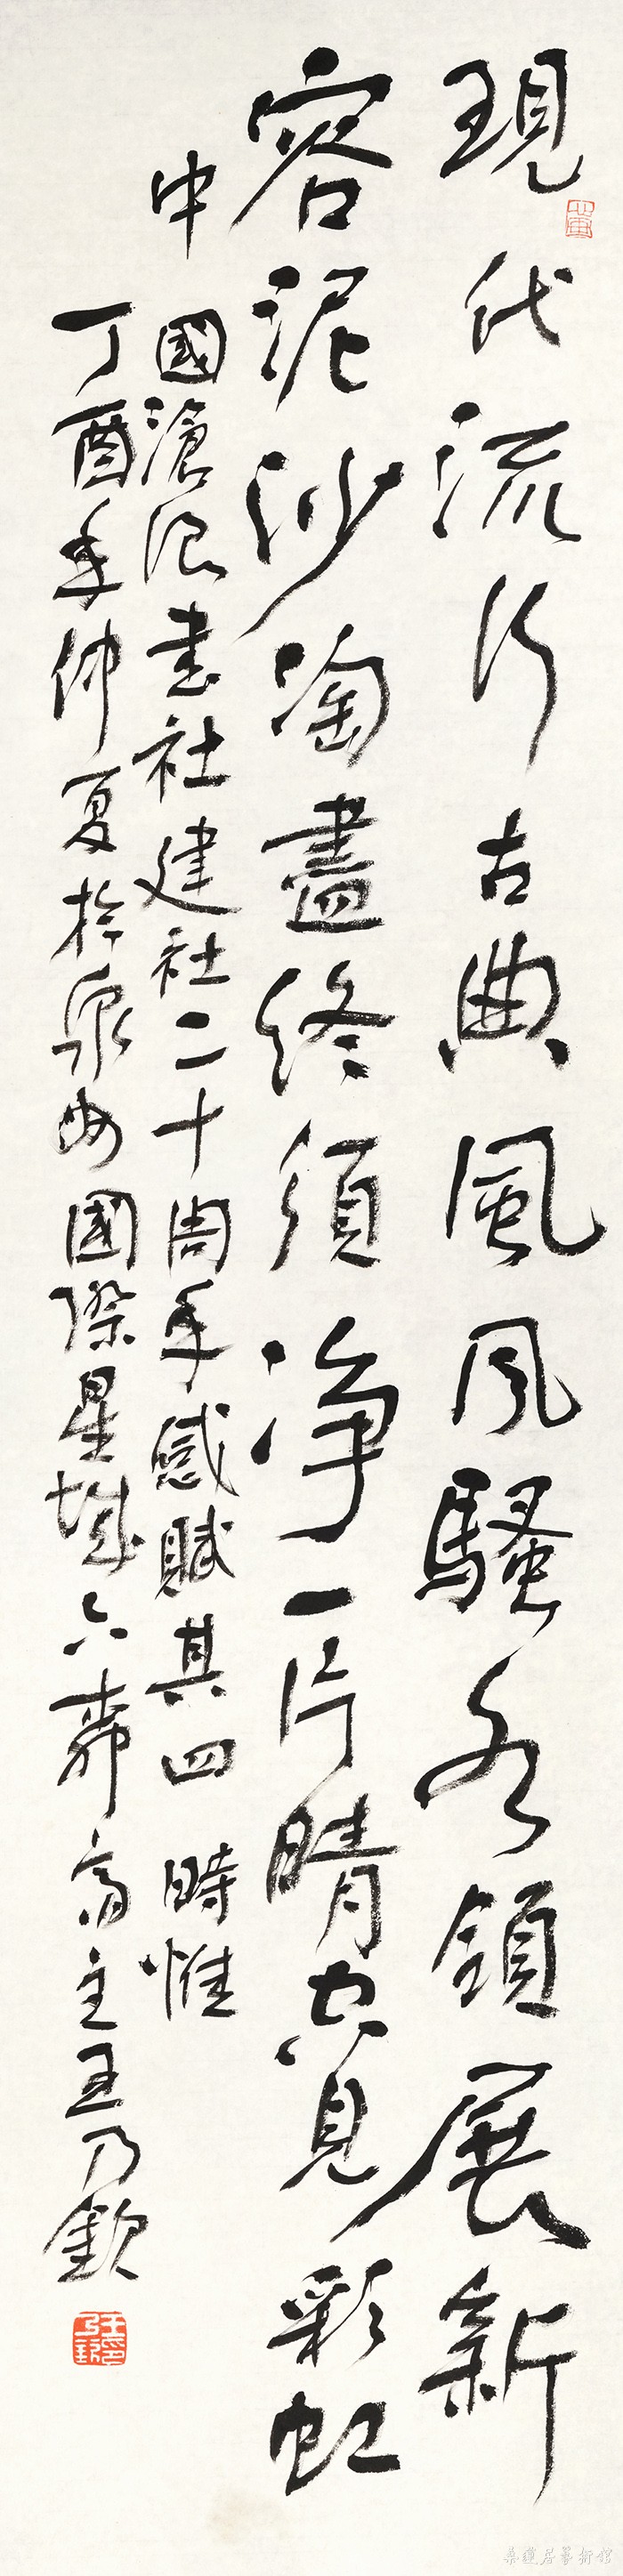 現代流行古典風風騷各領展新
容泥沙淘盡終須淨一片晴空見彩虹
中國滄浪書社建社二十周年感賦其四 時惟
丁酉年仲夏於泉州國際星城六弄齋主王乃欽